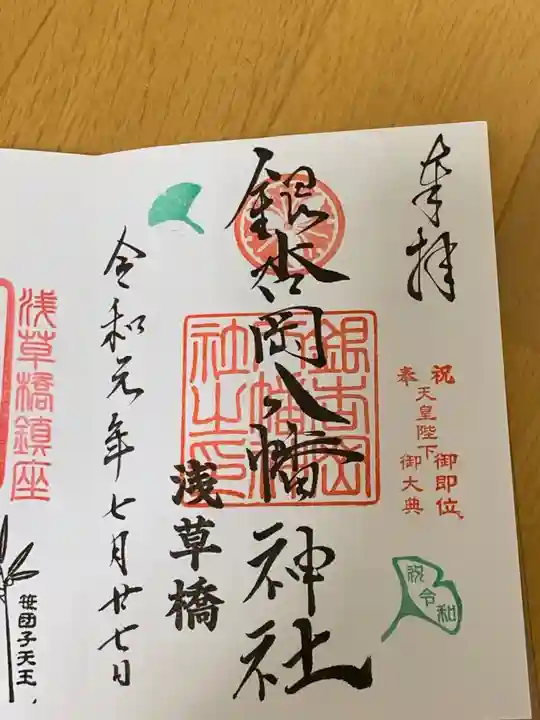 奉拝
奉祝
天皇陛下
御即位
御大典
祝令和
銀杏岡八幡神社
銀杏岡八幡神社之印
浅草橋
令和元年七月廿七日
浅草橋鎮座
笹団子天王、